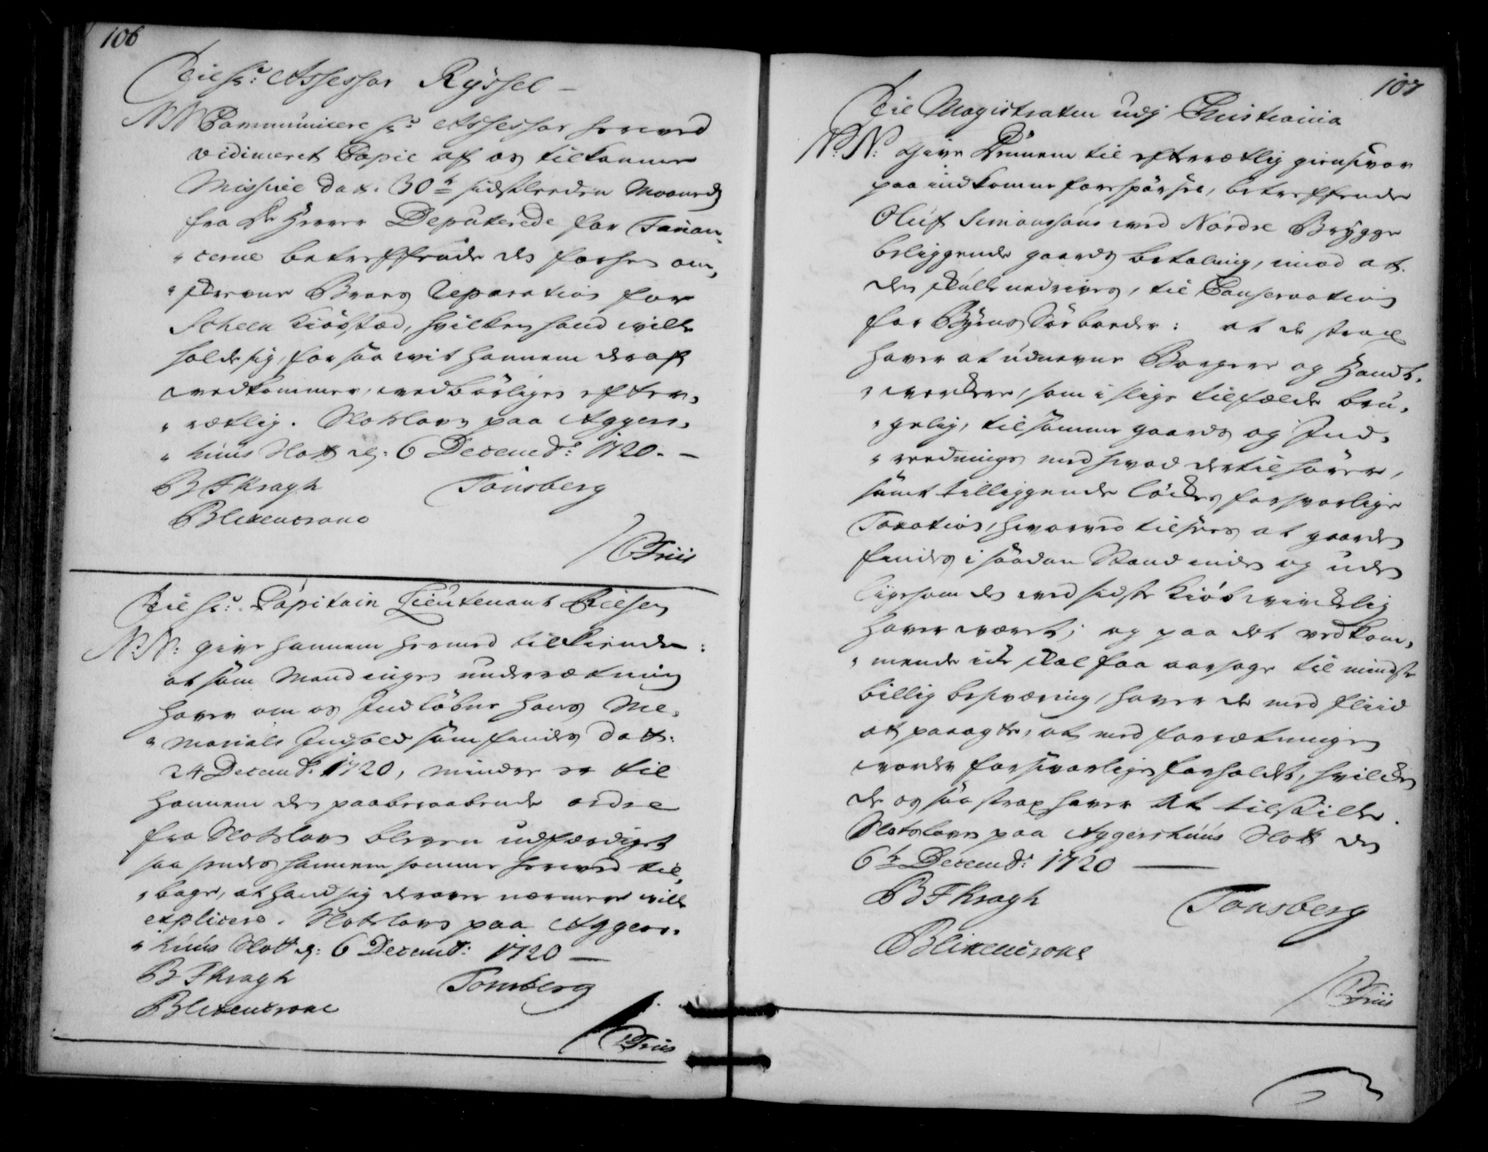 106
Til Hr: Assessor Ryssel –
N: N: Communicere Hr: Assessor herved
vidimeret Copie af os tilkomne
Missive dat: 30te sidstleeden Maaned
fra De Herrer Deputerede for Finan-
cerne betreffende des forhen om-
skrevne Broes Reparation for
Scheen Kiøbstæd, hvilken hand ville
holde sig, for saa vit hannem deraf
vedkommer, vedbørligen efter-
rætlig. Slotslov paa Aggers-
huus Slott d: 6 Decembr: 1720. –
B F Kragh Tønsberg
Blixencrone
/ C Friis
Til Hr: Capitain Lieutenant Nielsen
N: N: give hannem hermed tilkiende:
at som Mand ingen underrætning
haver om os Indløbne hans Me-
morials Indhold som findes datt:
24 Decemb: 1720, mindre er til
hannem den paaberaabende ordre
fra Slotslov bleven udfærdiget
saa sendes hannem samme herved til-
bage, at hand sig derover nærmere vill
explicere. Slotslov paa Aggers-
huus Slott d: 6 Decemb: 1720 –
B F Kragh Tønsberg
Blixencrone
/ C Friis
107
Til Magistraten udj Christiania
N: N: give Dennem til efterrætlig giensvar
paa indkomne forespørsel, betreffende
Oluf Simonsens ved Nordre Brygge
beliggende gaards betaling, imod at
den skulle nedrives, til Conservation
for Byens Søebarder: at de strax
haver at udnevne Borgere og Handt-
verkere, som i slige tilfælde bru-
gelig, til samme gaards og Ind-
reednings med hvad dertil hører,
samt tilliggende løckes forsvarlige
Taxation, hvorved tilsees at gaarden
findes i saadan Stand inden og uden
ligesom den ved sidste Kiøb virckelig
haver været; og paa det vedkom-
mende icke skal faa aarsage til mindste
billig besværing, haver de med fliid
at paaagte, at med forrætningen
vorder forsvarligen forholdet, hvilcken
de os saa strax haver at tilstille.
Slotsloven paa Aggershuus Slott den
6te Decemb: 1720 –
B F Kragh Tonsberg
Blixencrone
/ C Friis